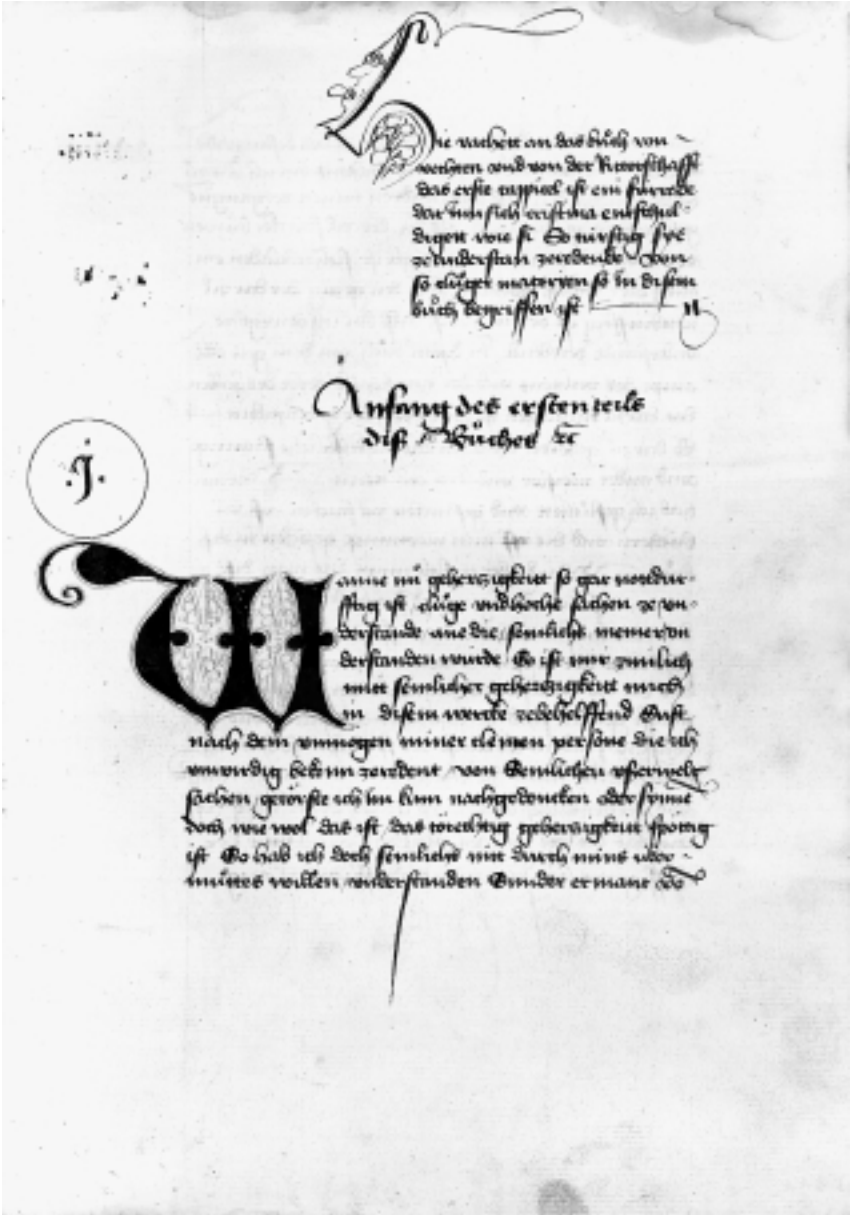 Hie vachett an das bůch von
vechten vnd von der Ritterschafft
das erste cappittel ist ein fürrede
dar Inn sich cristina entschul
digett wie si So sye
ze vnderstan zeredende von
so clůger materyen so in disem
bůch begriffen ist
Anfang des ersten teils
diß Bůches ꝛc
.j.
Wanne nů geherczigkeitt so gar nottdur
fftig ist clůge vnd hoche sachen ze vn
derstande ane die semlichs niemer vn
derstanden wurde So ist mir zimlich
mitt semlicher geherczigkeitt mich
in disem wercke zebehelffend Sust
nach dem vnmogen miner cleinen persone die ich
vnwirdig bekenn zeredent von Semlichen vserwelt
sachen getörste ich im kum nachgedencken oder synne
doch wie wol das ist das törechtig geherczigkeitt spöttig
ist So hab ich doch semlichs nit durch mins über
můttes willen vnderstanden Sunder ermant